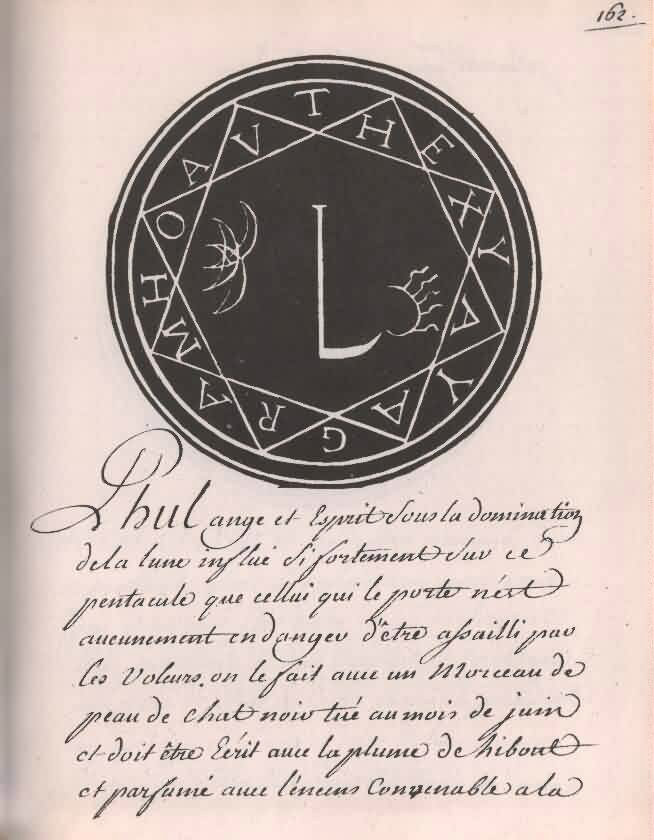 162.
T H E X Y A Y A G R A M H O A V
L
Phul ange et Esprit sous la domination
de la lune influé si fortement sur ce
pentacule que cellui qui le porte n'est
aucunement en danger d'être assailli par
les Voleurs. on le fait avec un Morceau de
peau de chat noir tué au mois de juin
et doit être Ecrit avec la plume de hibout
et parfumé avec l'encens Convenable a la